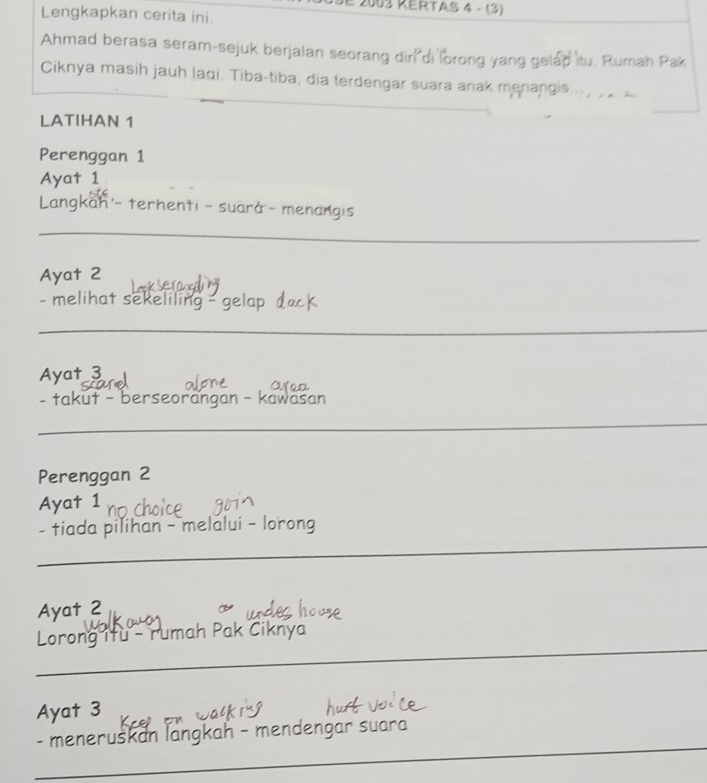 2003 KERTAS 4 - (3)
Lengkapkan cerita ini.
Ahmad berasa seram-sejuk berjalan seorang diri di lorong yang gelap itu. Rumah Pak
Ciknya masih jauh lagi. Tiba-tiba, dia terdengar suara anak menangis...
LATIHAN 1
Perenggan 1
Ayat 1
Langkah - terhenti - suara - menangis
Ayat 2
- melihat sekeliling - gelap dack
Ayat 3
scared alone area
- takut - berseorangan - kawasan
Perenggan 2
Ayat 1
no choice goin
- tiada pilihan - melalui - lorong
Ayat 2
walk away house
Lorong itu - rumah Pak Ciknya
Ayat 3
Keep on walking voice
- meneruskan langkah - mendengar suara